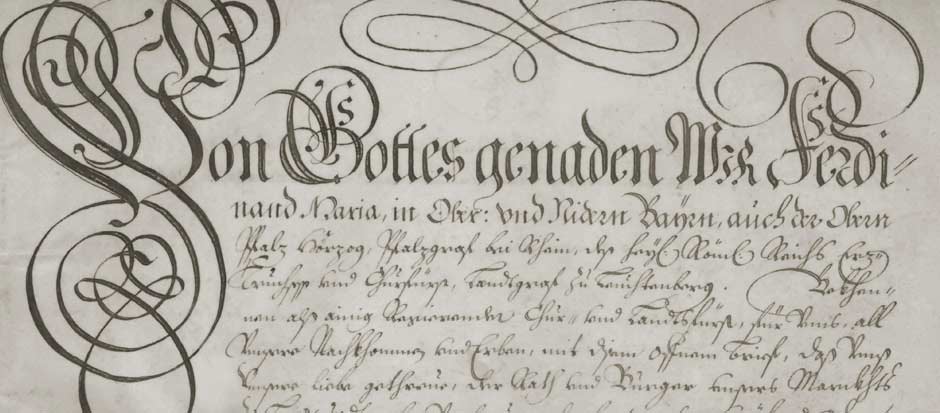 Von Gottes genaden Wir Ferdi=
nand Maria, in Ober: vnd Nidern Bayrn, auch der Obern
Pfalz Hörzog, Pfalzgraf bei Rhein, des heyl: Röm: Reichs Erz=
Truchseß vnd Churfürst, Landtgraf zu Leuchtenberg. Bekhen=
nen alß ainig Regierender Chur= vnd Landtsfürst, für Vnns, all
Vnnsere Nachkhommen vnd Erben, mit disem offnem Brief, daß Vnnß
Vnnsere liebe gethreue, der Rath vnd Burger vnnsers Marckhts